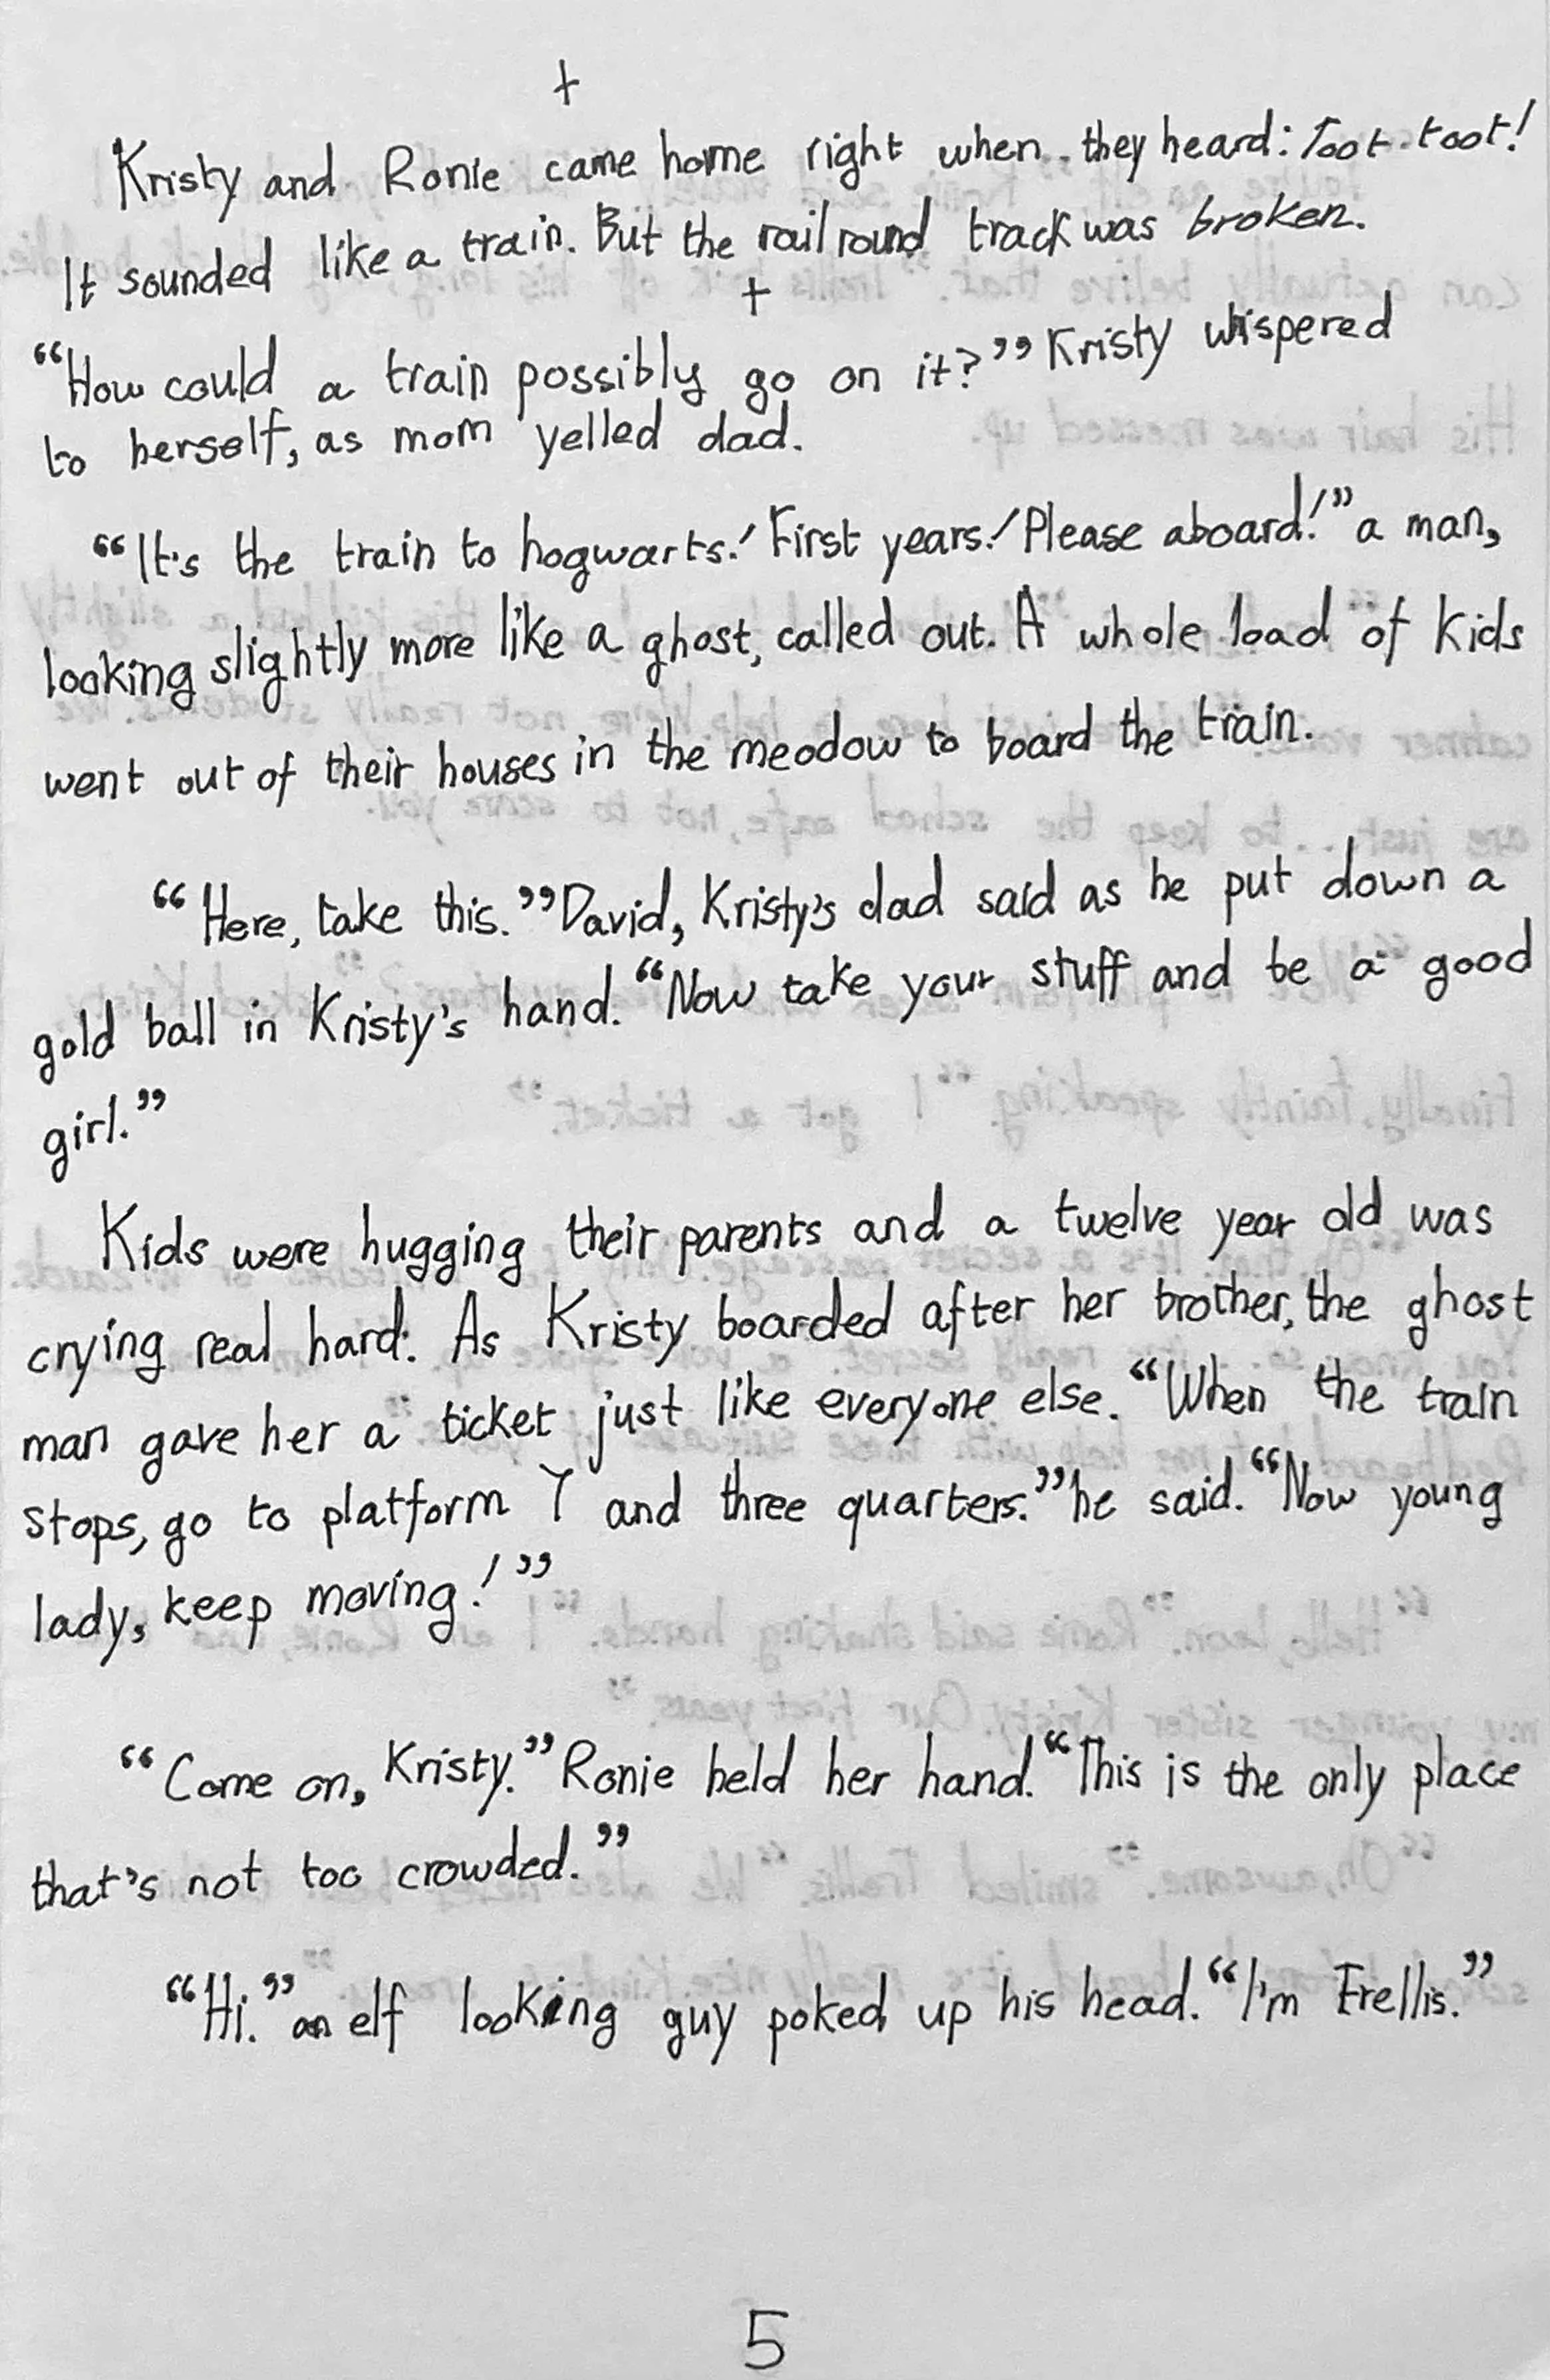 +
Kristy and Ronie came home right when they heard: Toot toot!
It sounded like a train. But the railround track was broken.
+
“How could a train possibly go on it?” Kristy whispered
to herself, as mom yelled dad.
“It's the train to hogwarts! First years! Please aboard!” a man,
looking slightly more like a ghost, called out. A whole load of kids
went out of their houses in the meodow to board the train.
“Here, take this.” David, Kristy's dad said as he put down a
gold ball in Kristy's hand. “Now take your stuff and be a good
girl.”
Kids were hugging their parents and a twelve year old was
crying real hard. As Kristy boarded after her brother, the ghost
man gave her a ticket just like everyone else. “When the train
stops, go to platform 7 and three quarters.” he said. “Now young
lady, keep moving!”
“Come on, Kristy.” Ronie held her hand. “This is the only place
that's not too crowded.”
“Hi.” an elf looking guy poked up his head. “I'm Frellis.”
5